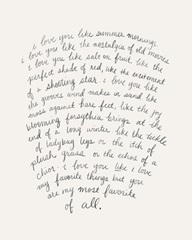 i love you like summer mornings.
i love you like the nostalgia of old movies
i love you like salt on fruit. like the
perfect shade of red, like the excitement
of a shooting star. i love you like
the grooves wind makes in sand. like
moss against bare feet, like the joy
blooming forsythia brings at the
end of a long winter. like the tickle
of ladybug legs or the itch of
plush grass or the echos of a
choir. i love you like i love
my favorite things but you
are my most favorite
of all.